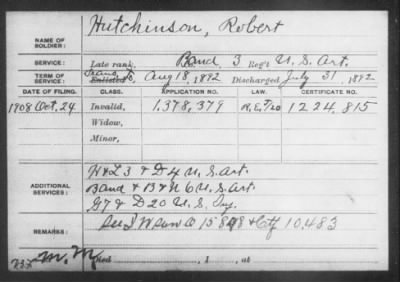 NAME OF SOLDIER: Hutchinson, Robert
SERVICE: Late rank, Band, 3 Reg't U. S. Art.
TERM OF SERVICE: Enlisted Trans. to Aug 18, 1892 Discharged July 31, 1892
DATE OF FILING. CLASS. APPLICATION NO. LAW. CERTIFICATE NO.
1908 Oct. 24 Invalid, 1,378,379 1224,815
Widow,
Minor,
ADDITIONAL SERVICES: H & L 3 & D 4 U. S. Art.
Band & B & N 6 U. S. Art.
G 7 & D 20 U. S. Inf.
REMARKS: See I W & Ctf 10,483
, 1 , at